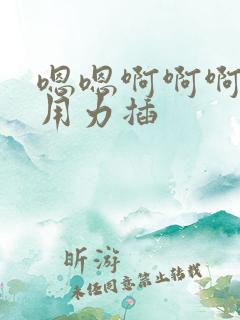 嗯嗯啊啊啊
用力插
昕游
未经同意禁止转载